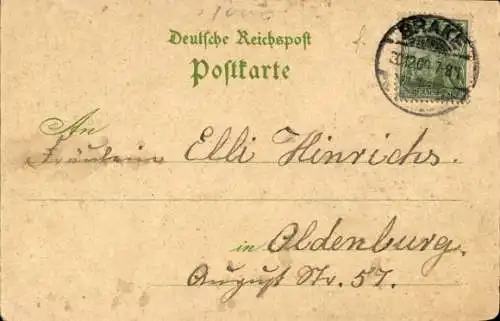 Deutsche Reichspost
Postkarte
BRAKE
An
Fräulein Elli Hinrichs.
in Oldenburg.
August Str. 57.